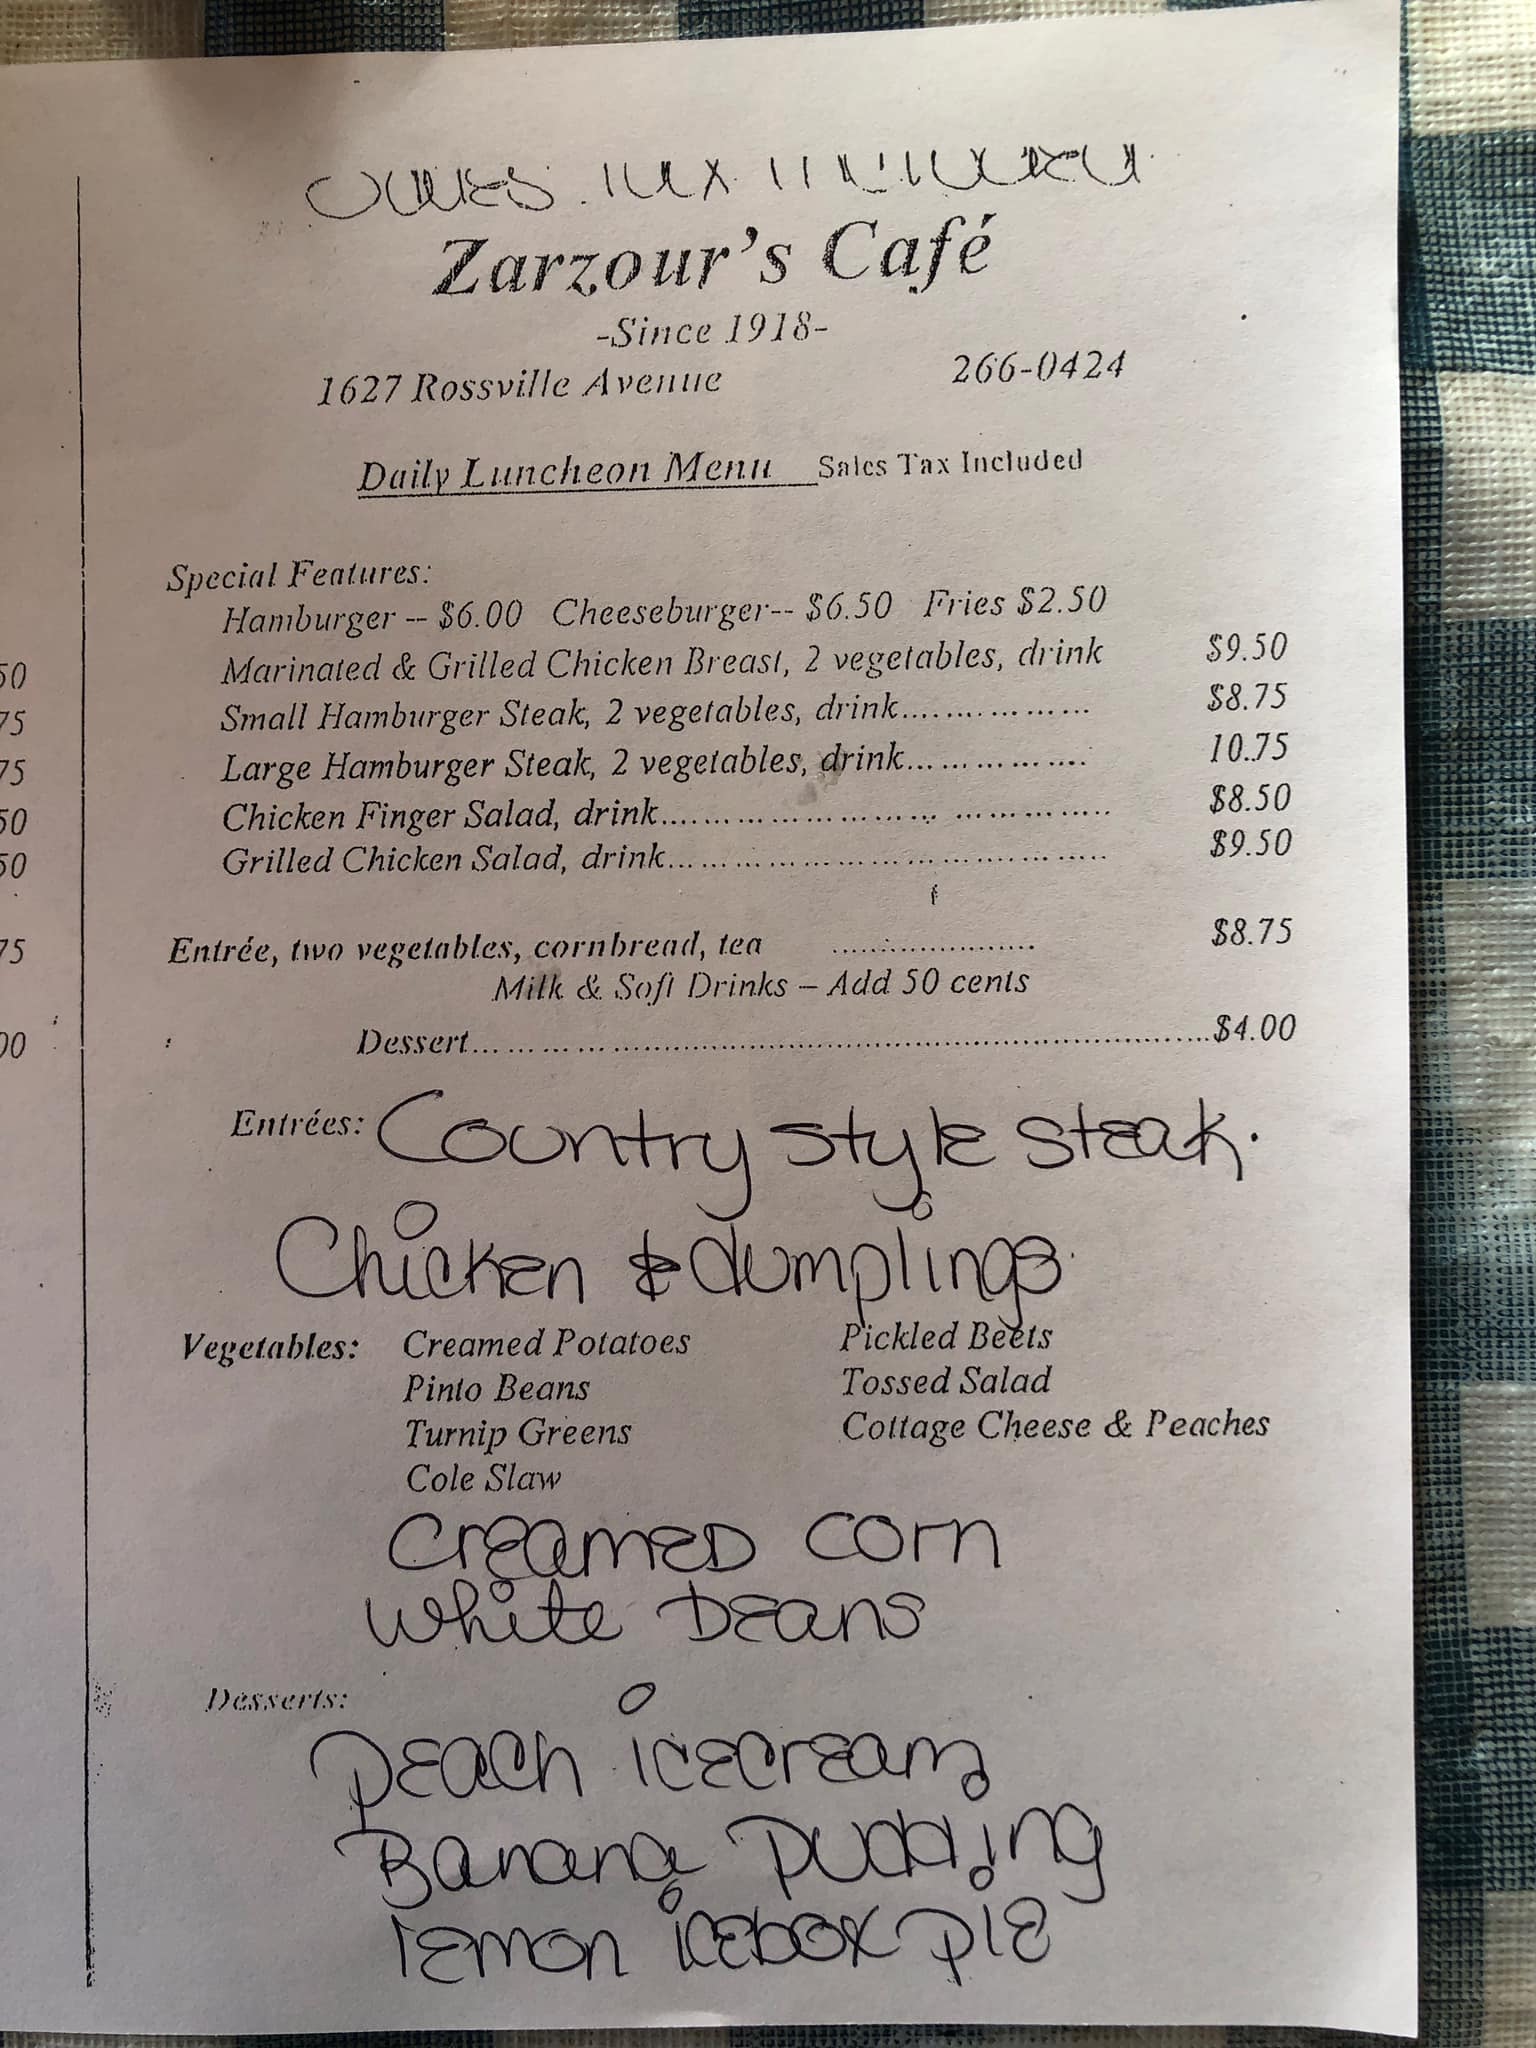 Zarzour's Café
-Since 1918-
1627 Rossville Avenue 266-0424
Daily Luncheon Menu Sales Tax Included
Special Features:
Hamburger -- $6.00 Cheeseburger-- $6.50 Fries $2.50
Marinated & Grilled Chicken Breast, 2 vegetables, drink $9.50
Small Hamburger Steak, 2 vegetables, drink................ $8.75
Large Hamburger Steak, 2 vegetables, drink................ 10.75
Chicken Finger Salad, drink........................................ $8.50
Grilled Chicken Salad, drink........................................ $9.50
Entrée, two vegetables, cornbread, tea ..................... $8.75
Milk & Soft Drinks – Add 50 cents
Dessert..........................................................................$4.00
Entrées: Country style steak.
Chicken & dumplings
Vegetables: Creamed Potatoes Pickled Beets
Pinto Beans Tossed Salad
Turnip Greens Cottage Cheese & Peaches
Cole Slaw
Creamed corn
white Beans
Desserts:
Peach icecream
Banana Pudding
lemon icebox pie
50
75
75
50
50
75
00